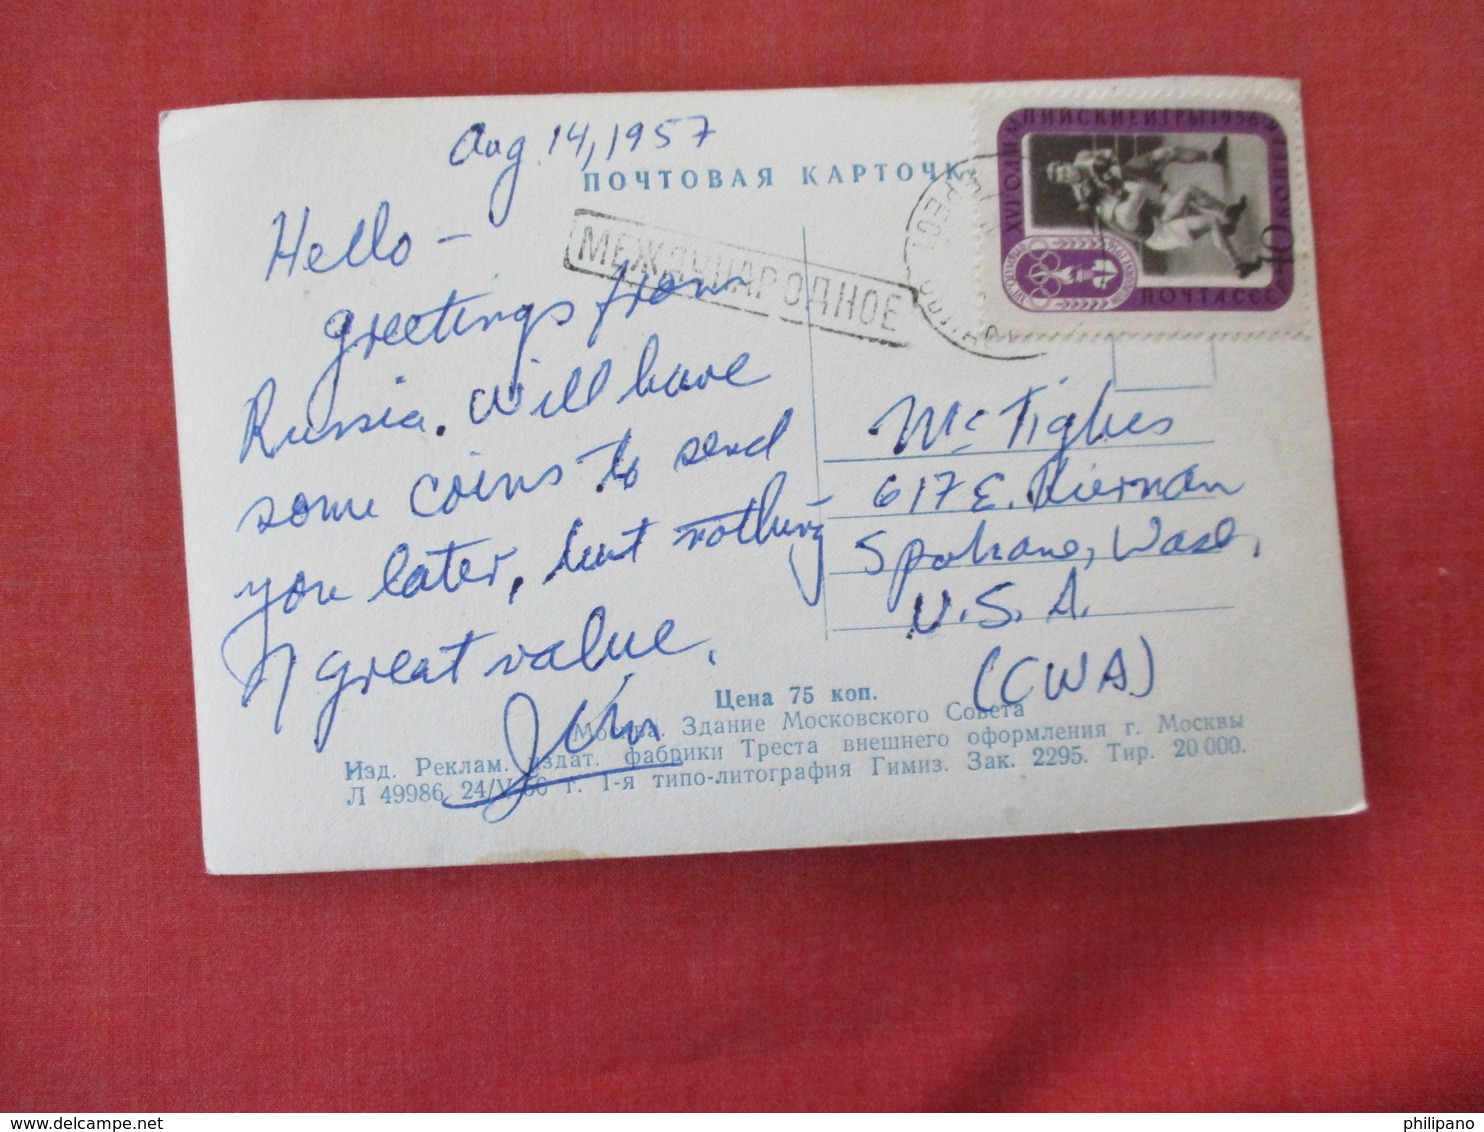 Aug 14, 1957
ПОЧТОВАЯ КАРТОЧК
Hello –
greetings from
Russia. Will have
some coins to send
you later, but nothing
of great value.
John
МЕЖДУНАРОДНОЕ
XVI ОЛИМПИЙСКИЕ ИГРЫ 1956
40 КОП
ПОЧТА СССР
McTighes
617 E. Kiernan
Spokane, Wash,
U.S.A.
(CWA)
Цена 75 коп.
Москва. Здание Московского Совета
Изд. Реклам. издат. фабрики Треста внешнего оформления г. Москвы
Л 49986 24/V-56 г. 1-я типо-литография Гимиз. Зак. 2295. Тир. 20 000.
philipano
www.delcampe.net